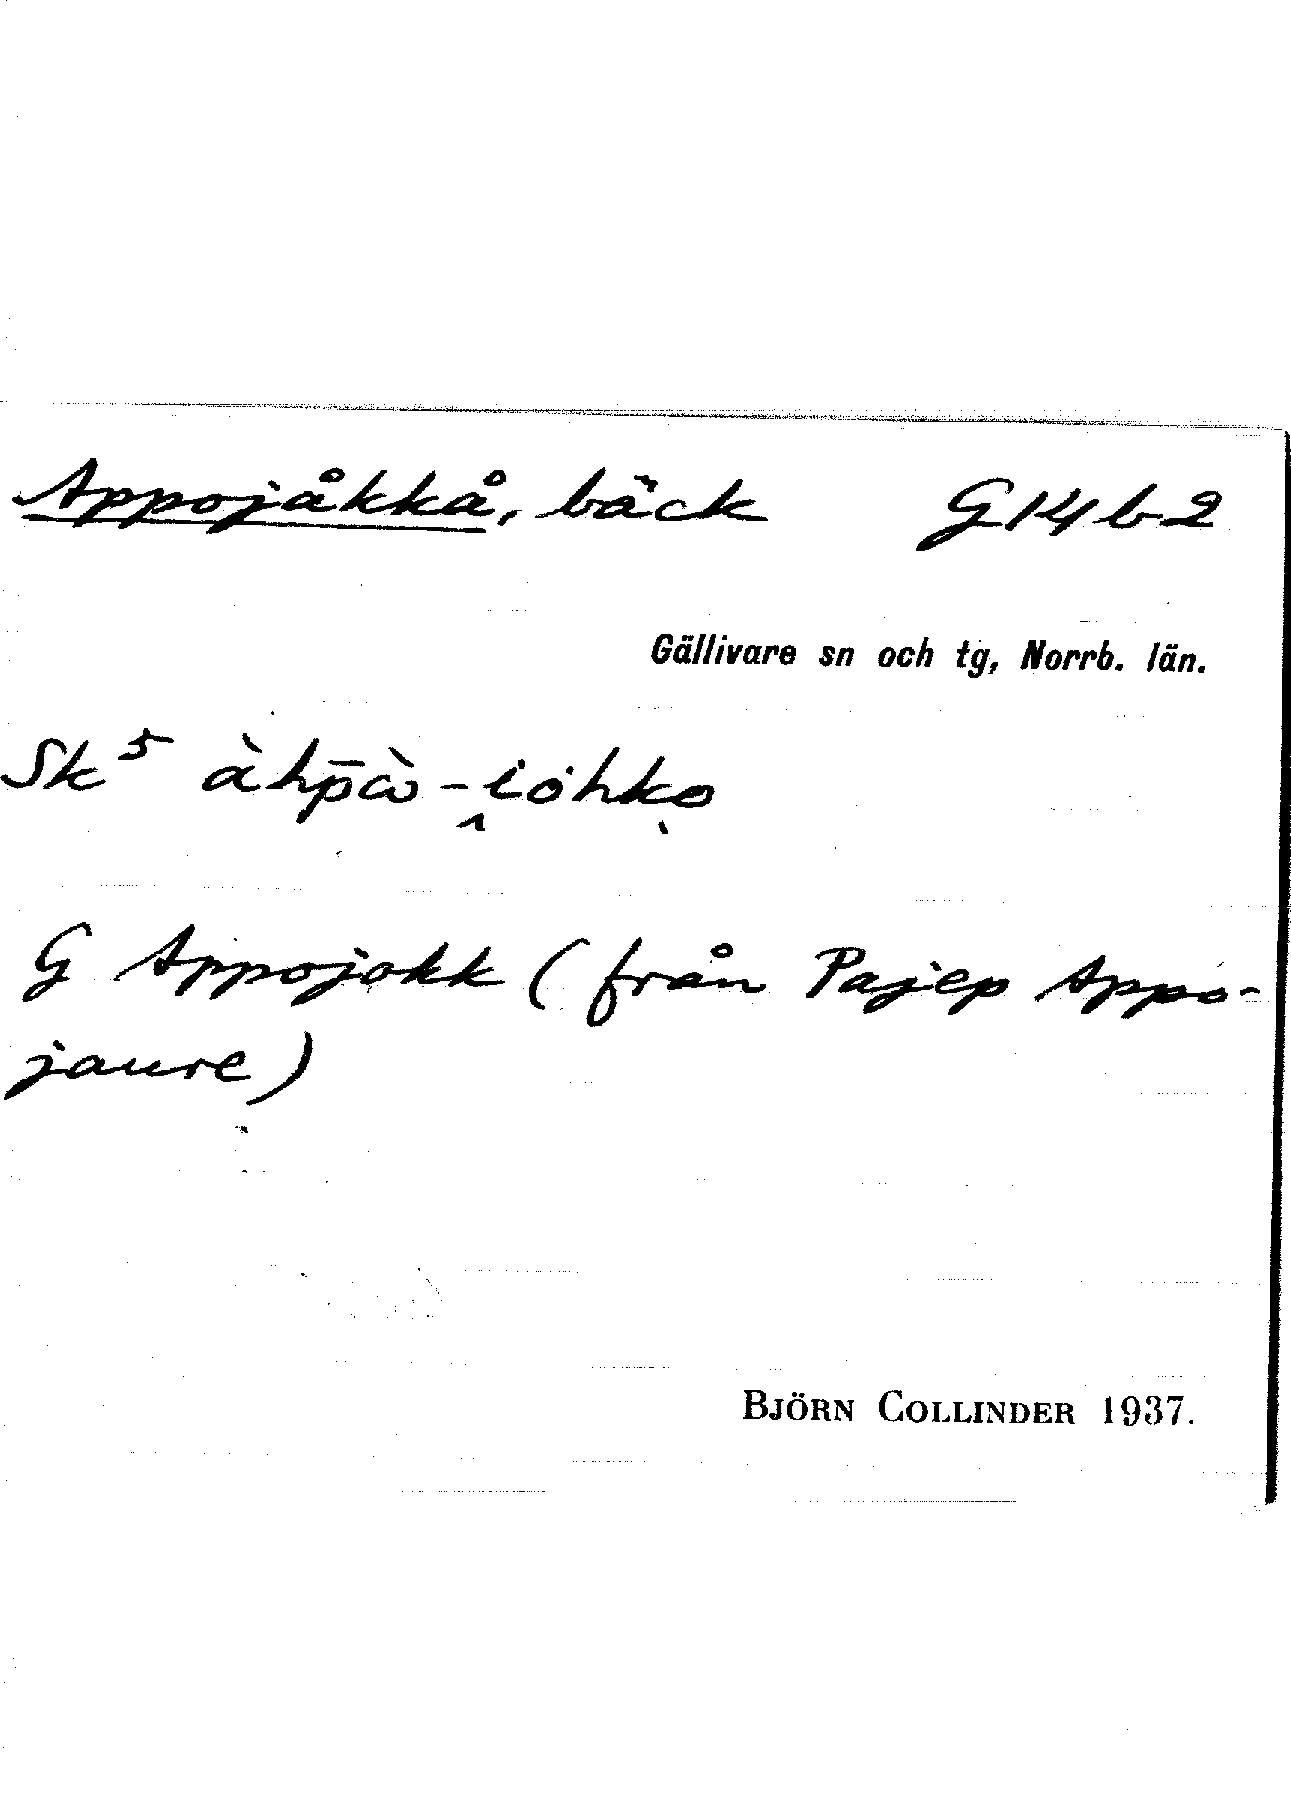 Appojåkkå, bäck G14b2
Gällivare sn och tg, Norrb. län.
Sk⁵ àhp̄ὼ-i̭ȯhko̖
G Appojokk (från Pajep Appo-
jaure)
BJÖRN COLLINDER 1937.